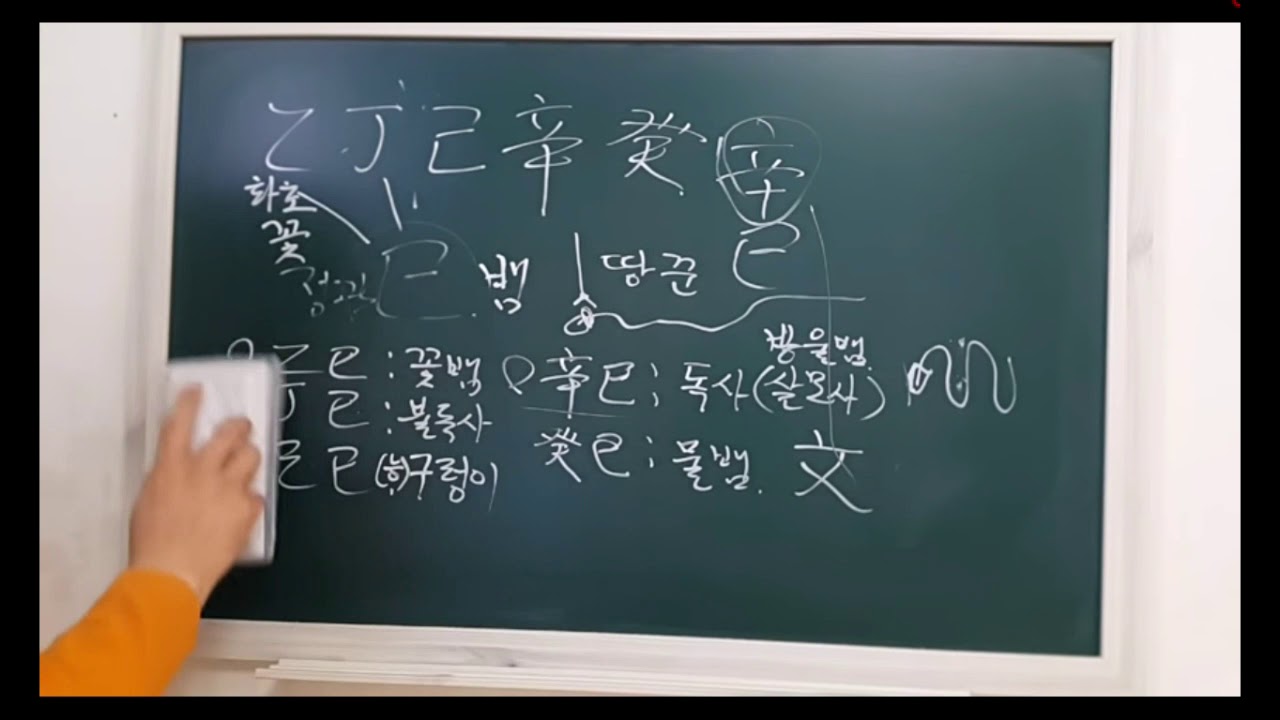 乙丁己辛癸 辛
화초
꽃
巳 뱀 땅꾼 巳
방울뱀
乙巳 : 꽃뱀 辛巳 ; 독사(살모사)
丁巳 : 불독사
己巳 (흙)구렁이 癸巳 ; 물뱀. 文